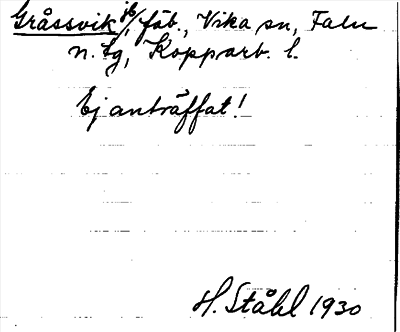 Gråssvik jb/, fäb., Vika sn, Falu
n. tg, Kopparb. l.
Ej anträffat!
H. Ståhl 1930